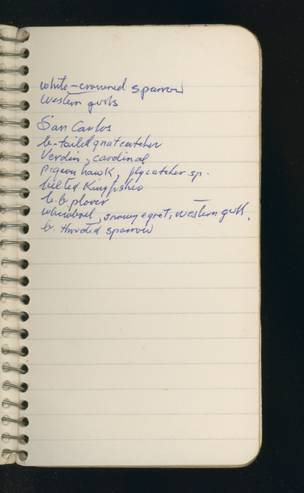 white-crowned sparrow
Western gulls
San Carlos
b-tailed gnatcatcher
Verdin, cardinal
Pigeon hawk, flycatcher sp.
belted Kingfisher
b.b plover
whimbrel, snowy egret, western gull,
b. throted sparrow